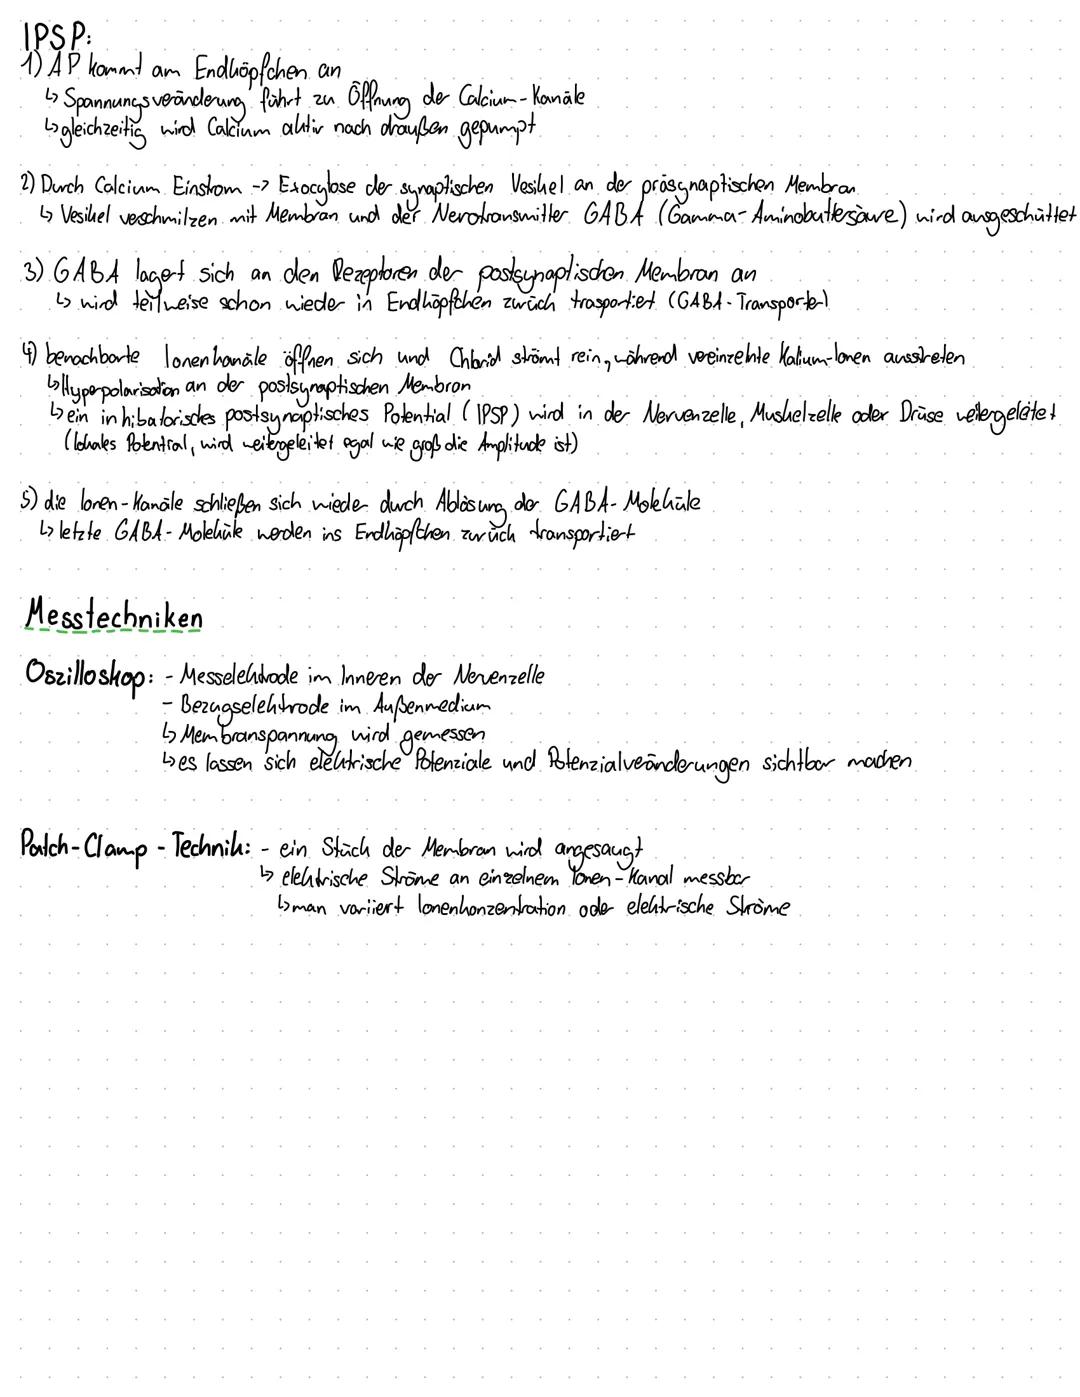 IPSP:
1) AP kommt am Endköpfchen an
↳ Spannungsveränderung führt zu Öffnung der Calcium-Kanäle
↳ gleichzeitig wird Calcium aktiv nach draußen gepumpt
2) Durch Calcium Einstrom -> Exocytose der synaptischen Vesikel an der präsynaptischen Membran
↳ Vesikel verschmilzen mit Membran und der Nerotransmitter GABA (Gamma-Aminobuttersäure) wird ausgeschüttet
3) GABA lagert sich an den Rezeptoren der postsynaptischen Membran an
↳ wird teilweise schon wieder in Endköpfchen zurück trasportiert (GABA-Transporter)
4) benachbarte Ionenkanäle öffnen sich und Chlorid strömt rein, während vereinzelnte Kalium-Ionen ausstreten
↳ Hyperpolarisation an der postsynaptischen Membran
↳ ein inhibatorisches postsynaptisches Potential (IPSP) wird in der Nervenzelle, Muskelzelle oder Drüse weitergeleitet
(lokales Potential, wird weitergeleitet egal wie groß die Amplitude ist)
5) die Ionen-Kanäle schließen sich wieder durch Ablösung der GABA-Moleküle
↳ letzte GABA-Moleküle werden ins Endköpfchen zurück transportiert
Messtechniken
Oszilloskop: - Messelektrode im Inneren der Nervenzelle
- Bezugselektrode im Außenmedium
↳ Membranspannung wird gemessen
↳ es lassen sich elektrische Potenziale und Potenzialveränderungen sichtbar machen
Patch-Clamp-Technik: - ein Stück der Membran wird angesaugt
↳ elektrische Ströme an einzelnem Ionen-Kanal messbar
↳ man variiert Ionenkonzentration oder elektrische Ströme